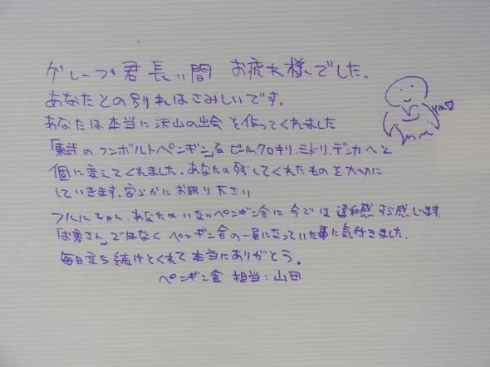 グレープ君 長い間 お疲れ様でした.
あなたとの別れはさみしいです。
あなたは本当に沢山の出会を作ってくれました
「東武のフンボルトペンギン」を ピルクロキリ、ミドリ、デンカへと
個に変えてくれました。あなたの残してくれたものを大切に
していきます。安らかにお眠り下さい
フルルちゃん、あなたのいないペンギン舎に今では違和感すら感じます
「お客さん」ではなく ペンギン舎の一員になっていた事に気付きました.
毎日立ち続けてくれて本当にありがとう。
ペンギン舎 担当:山田